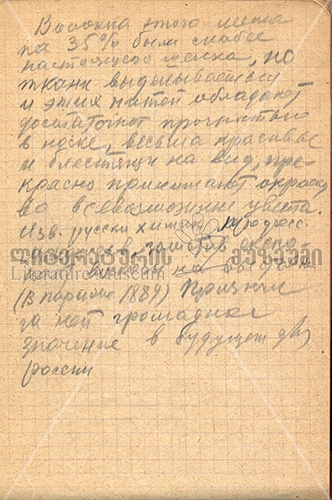 Волокна этого шелка
на 35% были слабее
настоящего шелка, но
ткани выделываемые
из этих нитей обладают
достаточной прочностью
в носке, весьма красивые
и блестящи на вид, пре-
красно принимают окраску
во всевозможные цвета.
Изв. русский химик
ლიტერატურის მუზეუმი
Literature Museum
(в париже 1889) признал
за ней громадное
значение в будущем для
России